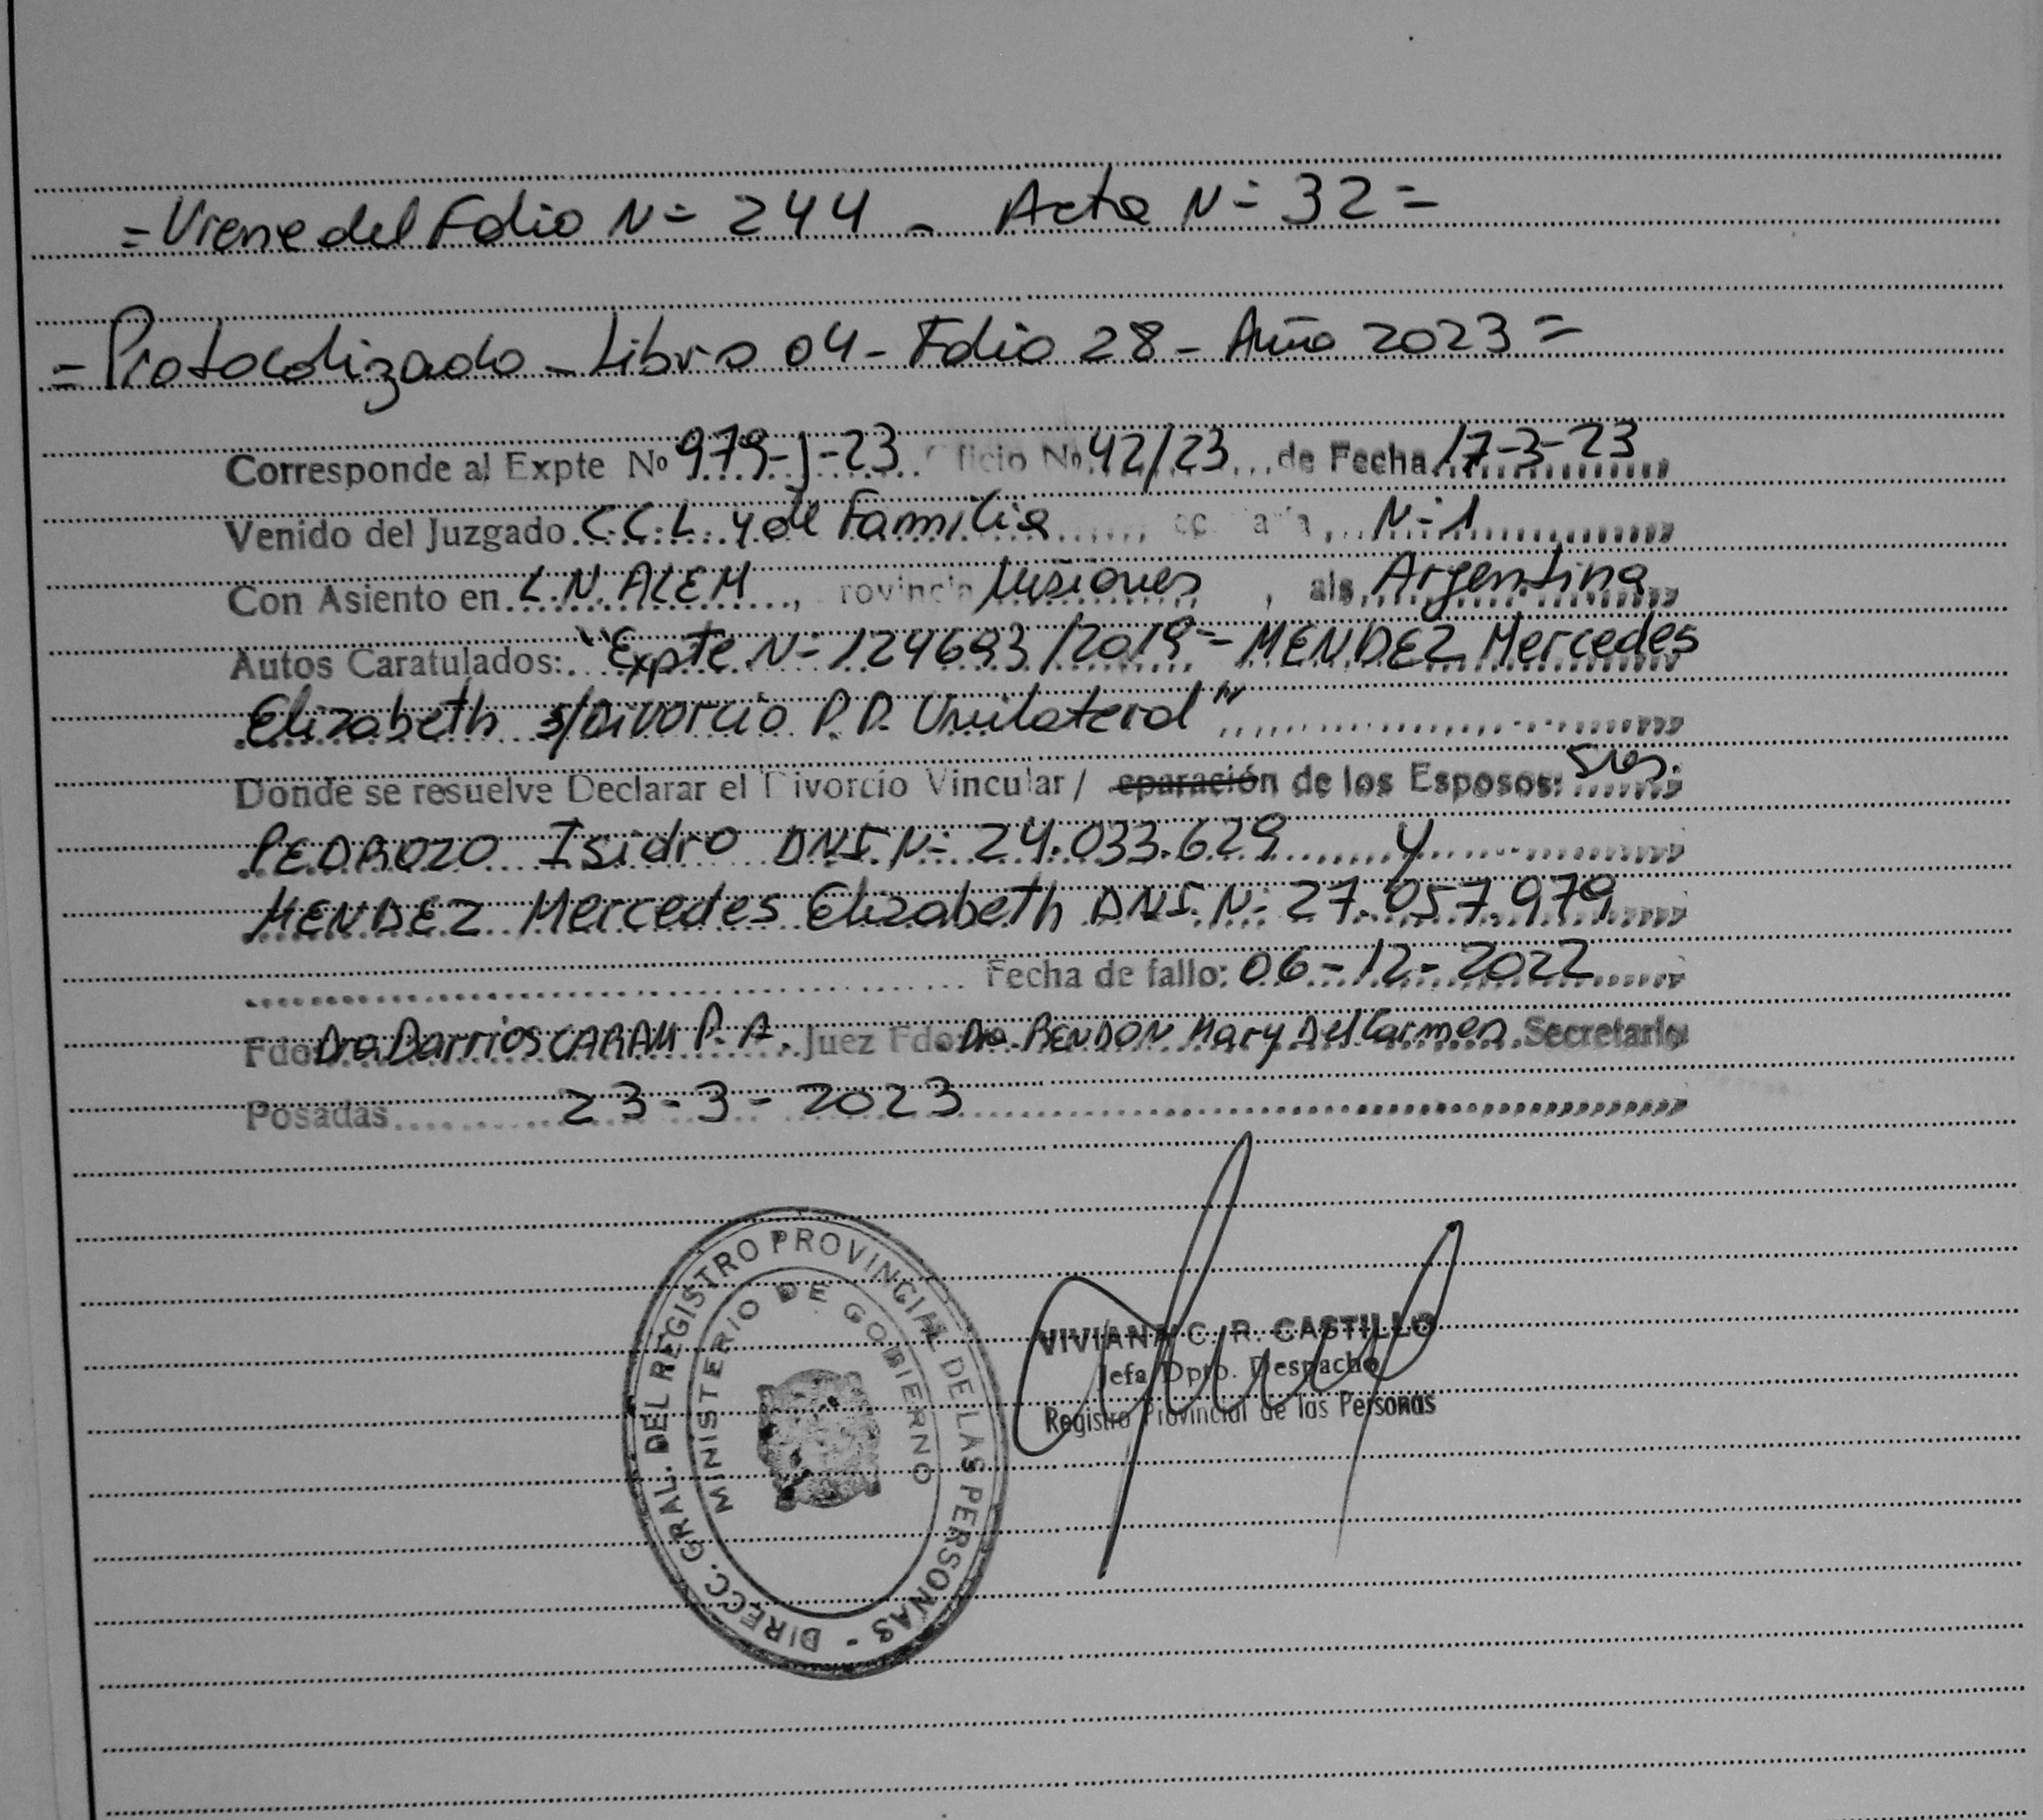 = Viene del Folio N= 244 - Acta N= 32 =
= Protocolizado - Libro 04 - Folio 28 - Año 2023 =
Corresponde al Expte Nº 979-J-23 Oficio Nº 42/23 de Fecha 17-3-23
Venido del Juzgado C.C.L. y de Familia N=1
Con Asiento en L.N. ALEM, Provincia Misiones, Argentina
Autos Caratulados: "Expte N= 124693/2019 = MENDEZ Mercedes
Elizabeth s/Divorcio P.P. Unilateral"
Donde se resuelve Declarar el Divorcio Vincular / eparación de los Esposos: Sres.
PEDROZO Isidro DNI. N= 24.033.629 y
MENDEZ Mercedes Elizabeth DNI. N= 27.057.979
Fecha de fallo: 06-12-2022
Fdo Dra Barrios CARAM P. A. Juez Fdo. Dra. RENDON Mary Del Carmen Secretario
Posadas 23-3-2023
DIRECC. GRAL. DEL REGISTRO PROVINCIAL DE LAS PERSONAS -
MINISTERIO DE GOBIERNO
VIVIANA C. R. CASTILLO
Jefa Dpto. Despacho
Registro Provincial de las Personas